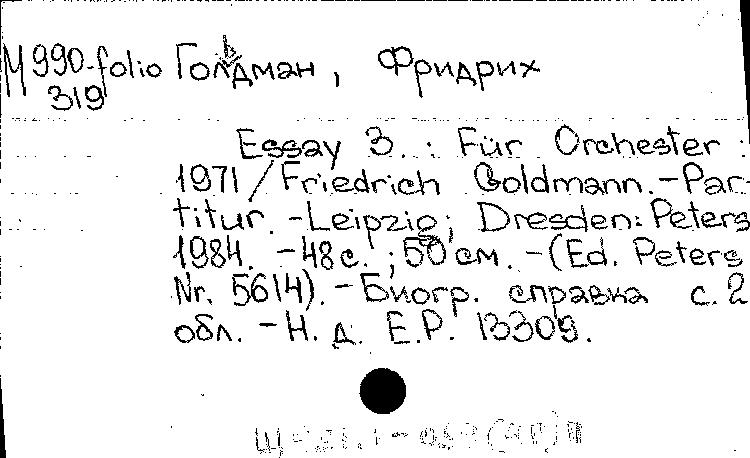 М990-folio Гольдман, Фридрих
319
Essay 3. : Für Orchester :
1971 / Friedrich Goldmann. - Par-
titur. - Leipzig; Dresden: Peters
1984. - 48 с. ; 50 см. - (Ed. Peters
Nr. 5614). - Биогр. справка с. 2
обл. - Н. д. E.P. 13309.